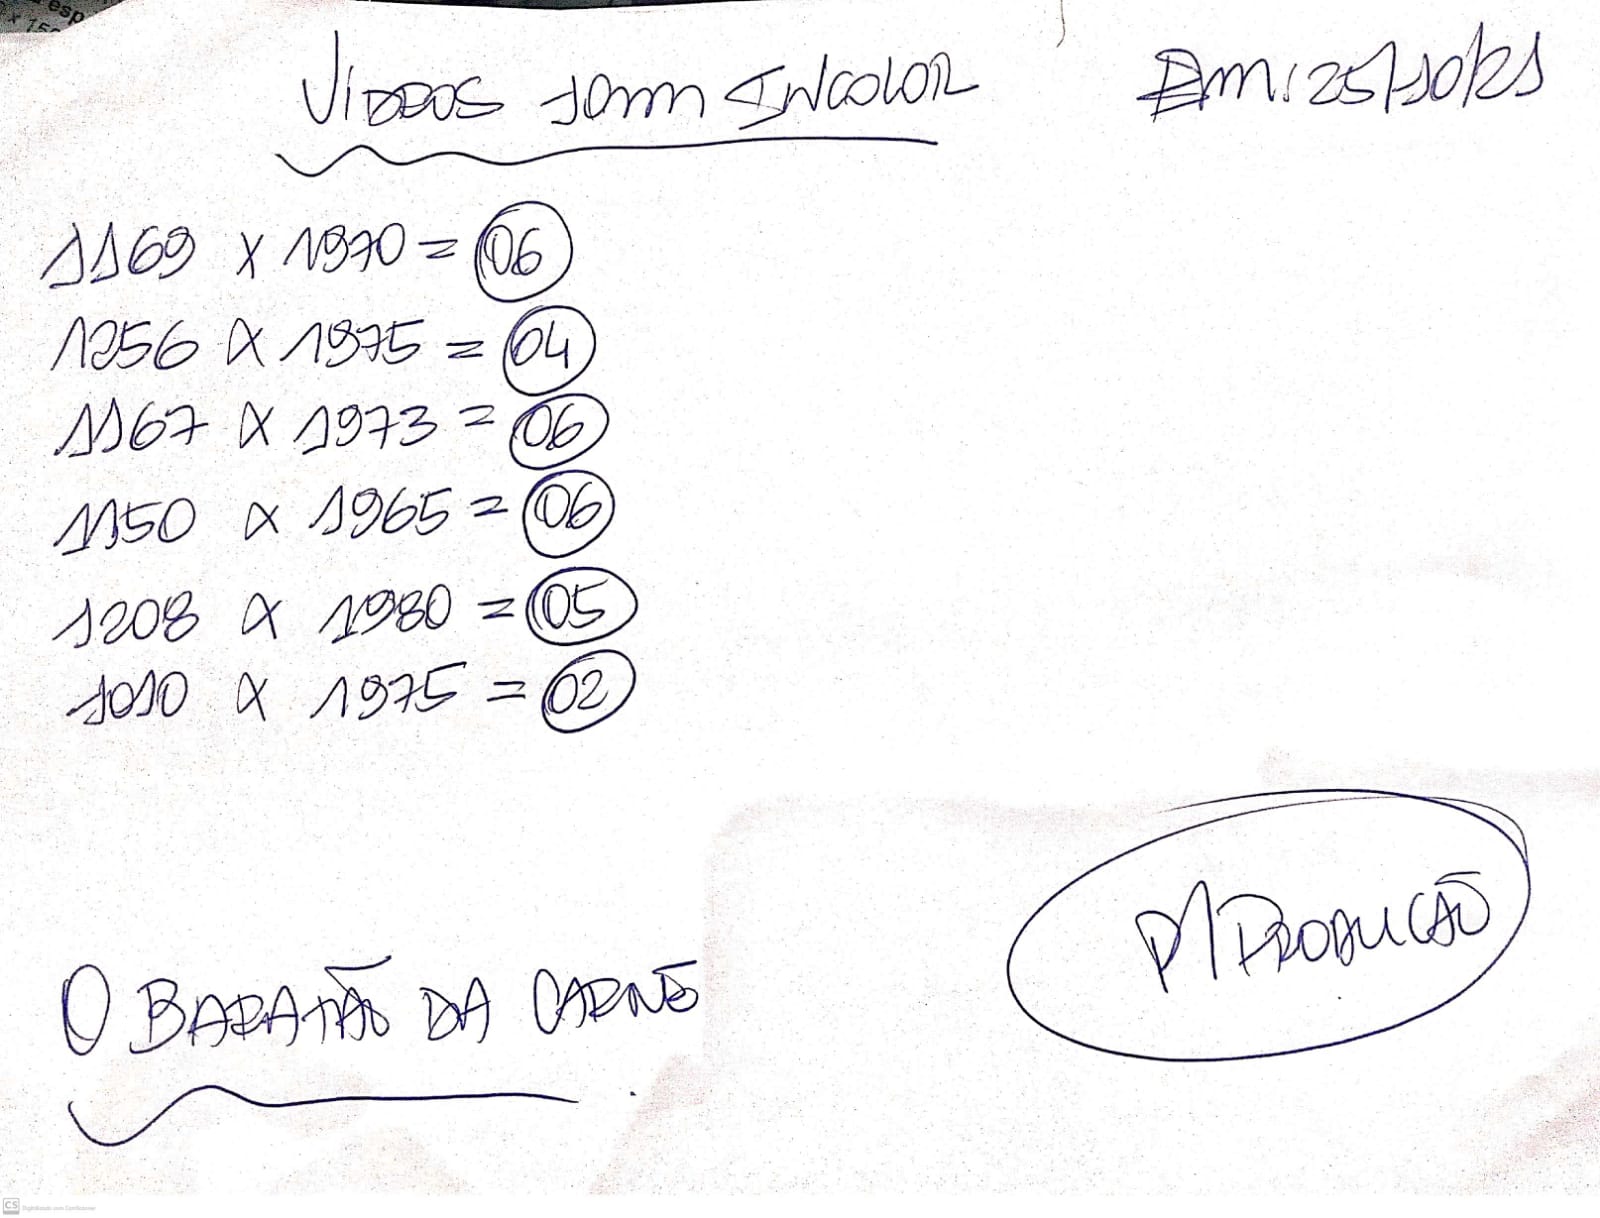 esp
x 150
VIDROS 10mm INCOLOR Em: 25/10/21
1169 x 1970 = 06
1256 x 1975 = 04
1167 x 1973 = 06
1150 x 1965 = 06
1208 x 1980 = 05
1010 x 1975 = 02
P/ PRODUCÃO
O BARATÃO DA CARNE
CS Digitalizado com CamScanner